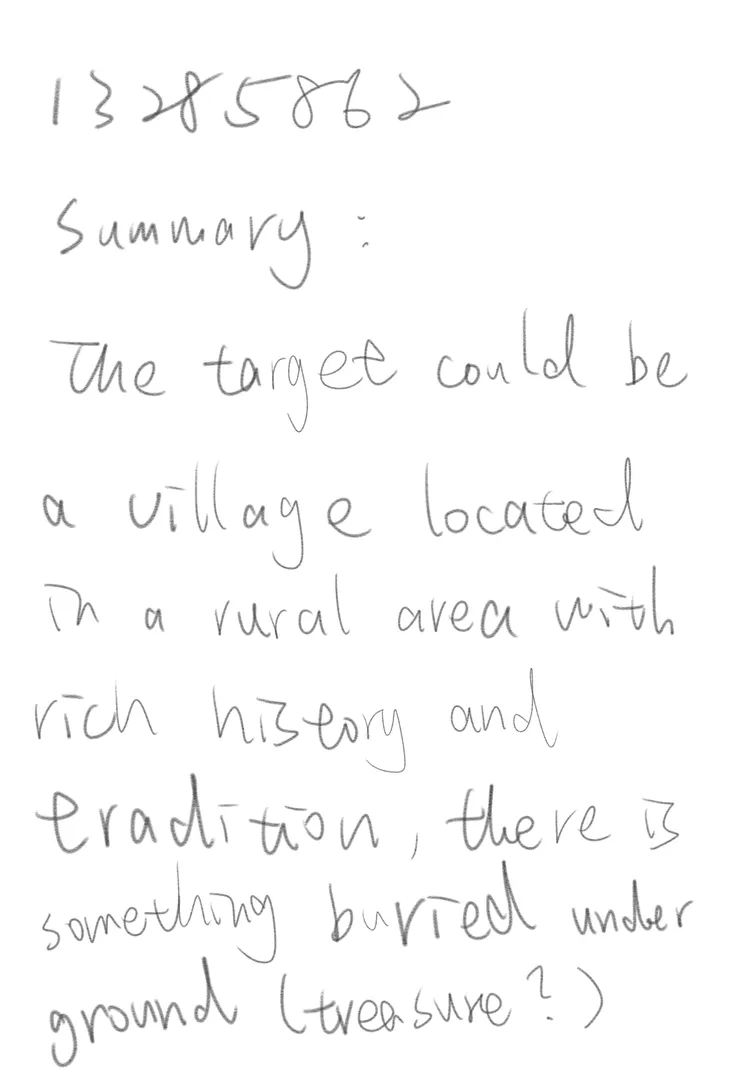 13285862
Summary:
The target could be
a village located
in a rural area with
rich history and
tradition, there is
something buried under
ground (treasure?)